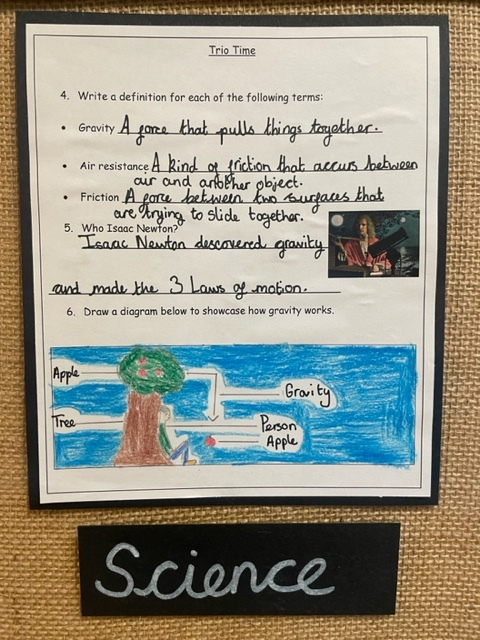 Trio Time
4. Write a definition for each of the following terms:
• Gravity A force that pulls things together.
• Air resistance A kind of friction that accurs between
air and another object.
• Friction A force between two surfaces that
are trying to slide together.
5. Who Isaac Newton?
Isaac Newton descovered gravity
and made the 3 Laws of motion.
6. Draw a diagram below to showcase how gravity works.
Apple
Gravity
Tree
Person
Apple
Science